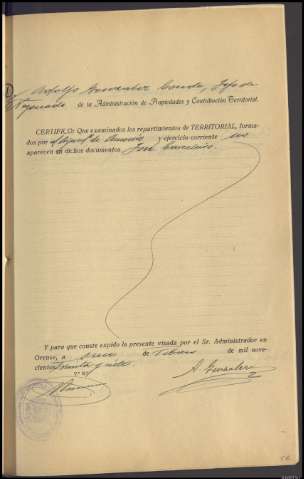 D. Adolfo González Conde, Jefe de
Negociado de la Administración de Propiedades y Contribución Territorial.
CERTIFICO: Que examinados los repartimientos de TERRITORIAL, forma-
dos por el Ayunt.º de y ejercicio corriente no
aparecen en dichos documentos José
Y para que conste expido la presente visada por el Sr. Administrador en
Orense, a once de Febrero de mil nove-
cientos treinta y siete.
V.º B.º
A. González